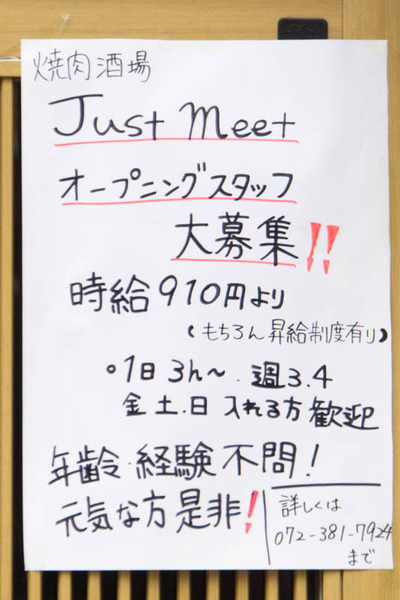 焼肉酒場
Just Meet
オープニングスタッフ
大募集!!
時給910円より
(もちろん昇給制度有り)
○1日3h〜.週3.4
金土.日入れる方歓迎
年齢・経験不問!
元気な方是非!
詳しくは
072-381-7924
まで